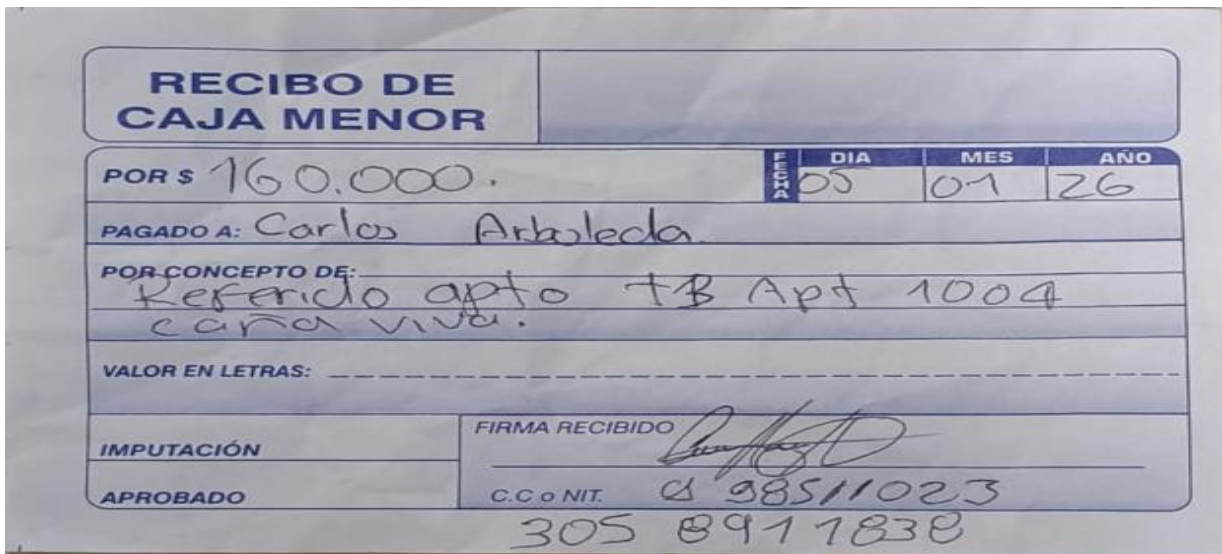 RECIBO DE
CAJA MENOR
POR $ 160.000.
FECHA
DIA MES AÑO
05 01 26
PAGADO A: Carlos Arboleda.
POR CONCEPTO DE:
Referido apto TB Apt 1004
caña viva.
VALOR EN LETRAS:
IMPUTACIÓN
FIRMA RECIBIDO
APROBADO
C.C o NIT. 98511023
305 8911838